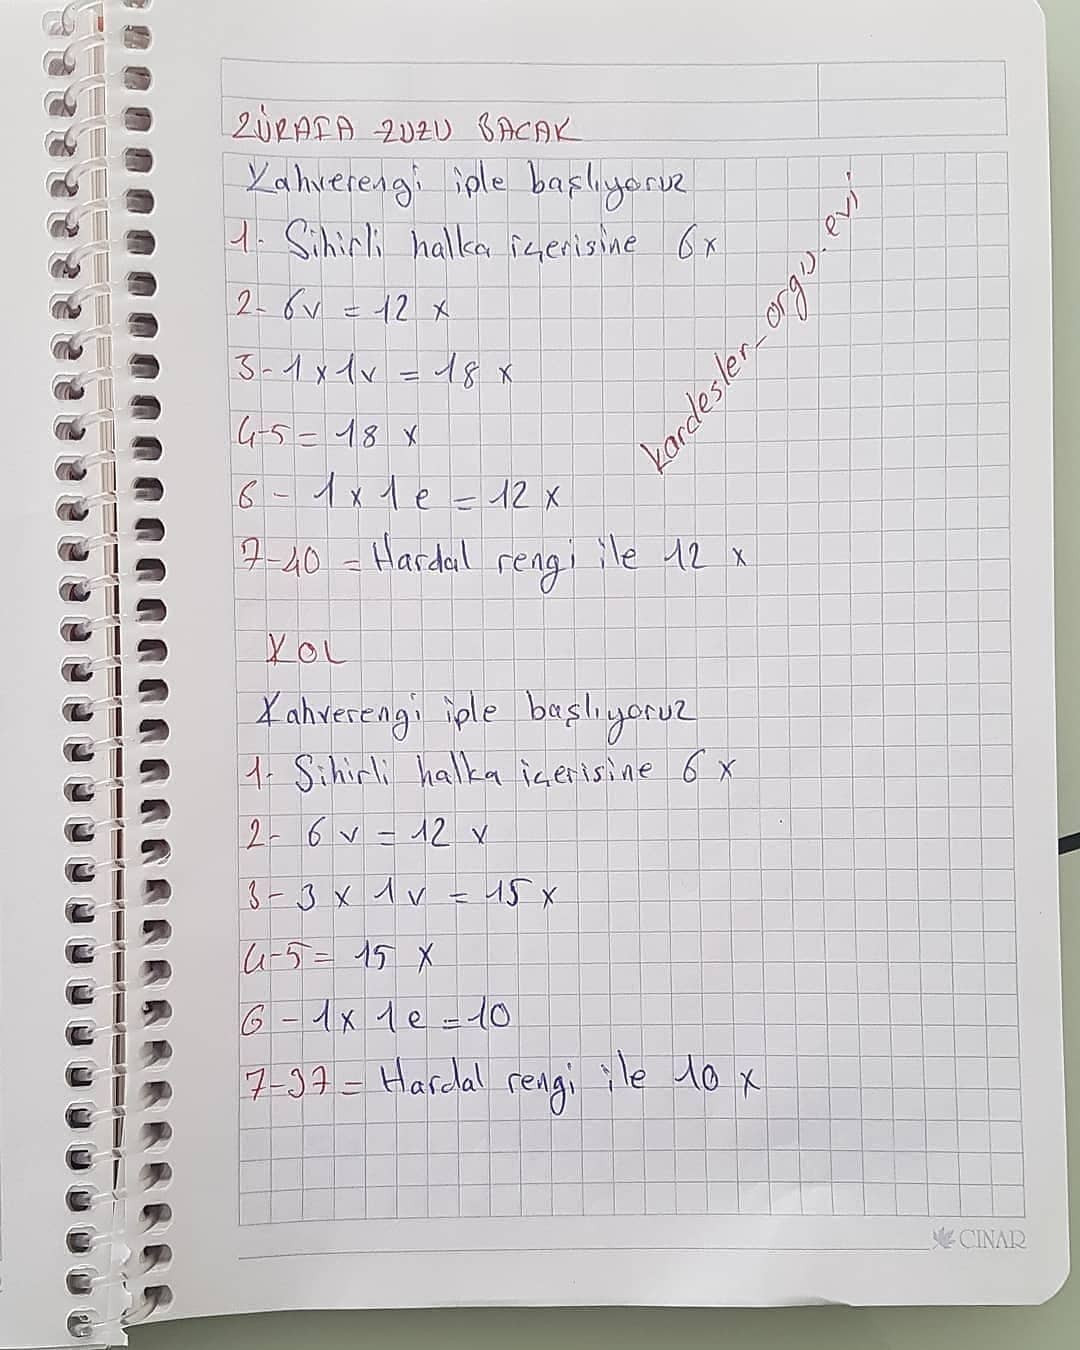 ZÜRAFA ZUZU BACAK
Kahverengi iple başlıyoruz
1- Sihirli halka içerisine 6x
2- 6v = 12 x
3- 1x1v = 18 x
4-5 = 18 x
6 - 1x1e = 12 x
7-40 = Hardal rengi ile 12 x
kardesler_orgu.evi
KOL
Kahverengi iple başlıyoruz
1- Sihirli halka içerisine 6 x
2- 6 v = 12 x
3- 3 x 1 v = 15 x
4-5 = 15 x
6 - 1x 1e = 10
7-37 = Hardal rengi ile 10 x
CINAR